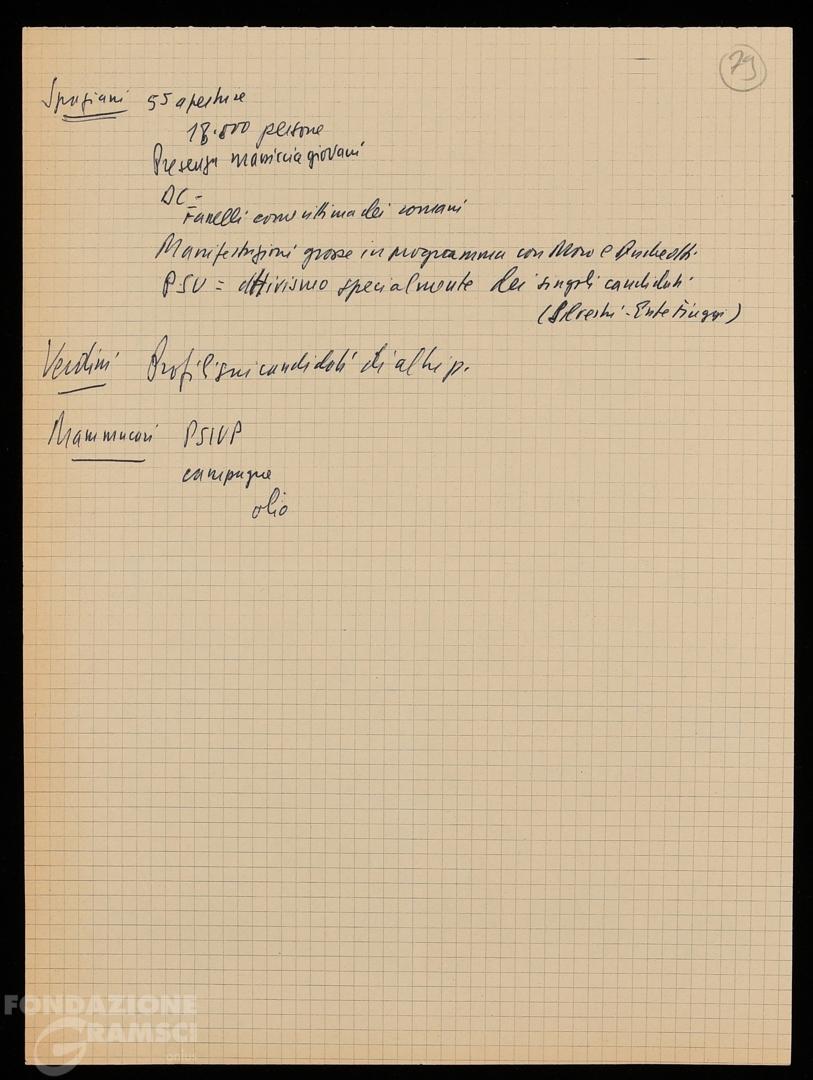 79
Spaziani 55 aperture
18.000 persone
Presenza massiccia giovani
DC =
Fanelli come vittima dei romani
Manifestazioni grosse in programma con Moro e Andreotti.
PSU = attivismo specialmente dei singoli candidati
(Silvestri - Ente Fiuggi)
Verdini Profili sui candidati di altri p.
Mammucari PSIUP
campagne
olio
FONDAZIONE
GRAMSCI
onlus